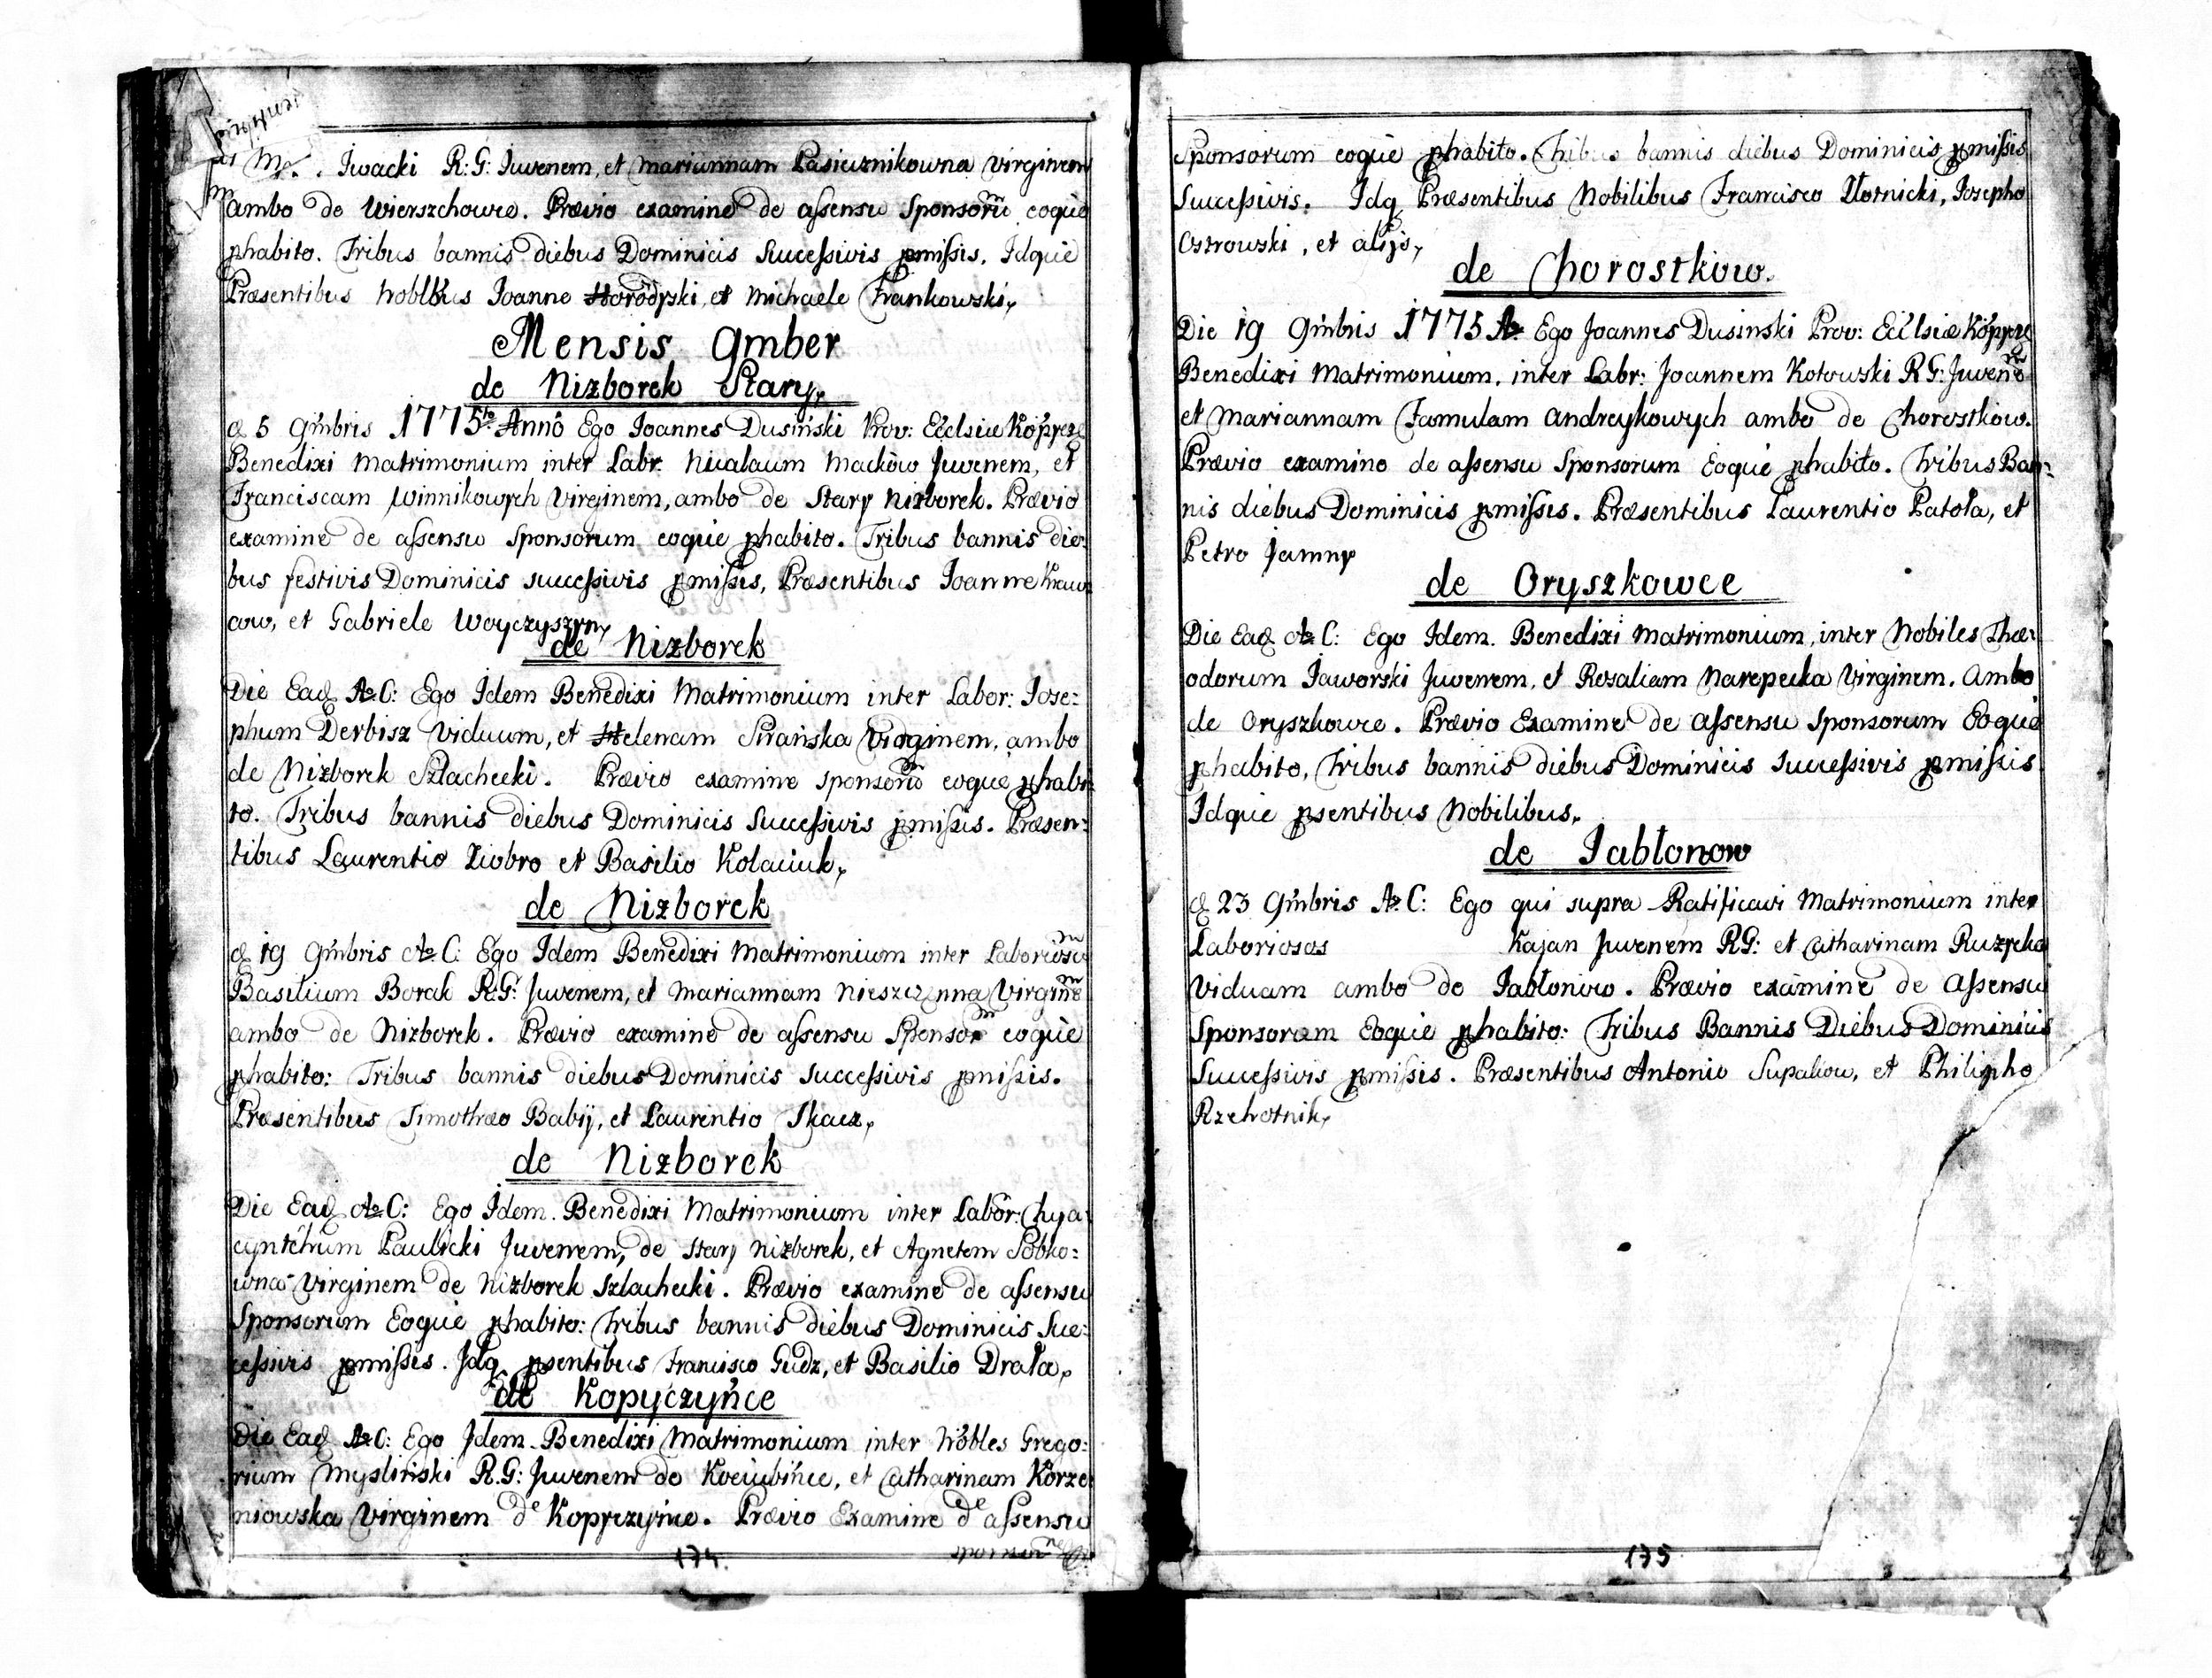 Iwacki R: G: Iuvenem, et Mariannam Pasiecznikowna Virginem
ambo de Wierszchowce. Prævio examine de assensu Sponsorũ eoquè
phabito. Tribus bannis diebus Dominicis Successivis pmissis. Idquè
Præsentibus Noblbus Ioanne Horodyski, et Michaele Frankowski,
Mensis 9mber
de Nizborek Stary,
d 5 9mbris 1775to Anno Ego Joannes Dusiński Prov: Ecclsiæ Kopycz
Benedixi Matrimonium inter Labr. Nicalaum Maćkow Juvenem, et
Franciscam Winnikowych Virginem, ambo de Stary Nizborek. Prævio
examine de assensu Sponsorum eoquè phabito. Tribus bannis die:
bus festivis Dominicis successivis pmissis, Præsentibus Joanne
ow, et Gabriele Woyczyszyn,
de Nizborek
Die Ead Ao C: Ego Idem Benedixi Matrimonium inter Labor: Jose:
phum Derbisz Viduum, et Helenam Sirańska Virginem, ambo
de Nizborek Szlachecki. Prævio examine sponsorũ eoquè phabi:
to. Tribus bannis diebus Dominicis Successivis pmissis. Præsen:
tibus Laurentio Ziobro et Basilio Kolaciuk,
de Nizborek
d 19 9mbris Ao C: Ego Idem Benedixi Matrimonium inter Laborioso
Basilium Borak R:G: Juvenem, et Mariannam Virginẽ
ambo de Nizborek. Prævio examine de assensu Sponsor eoquè
phabito: Tribus bannis diebus Dominicis successivis pmissis.
Præsentibus Timothæo Babij, et Laurentio Tkacz,
de Nizborek
Die Ead Ao C: Ego Idem Benedixi Matrimonium inter Labor: Chya:
cynthum Paulicki Juvenem, de Stary Nizborek, et Agnetem Sobko:
wna Virginem de Nizborek Szlachecki. Prævio examine de assensu
Sponsorum Eoquè phabito: Tribus bannis diebus Dominicis Suc:
cessivis pmissis. Idq psentibus Francisco Gudz, et Basilio Drała,
de Kopyczyńce
Die Ead Ao C: Ego Idem Benedixi Matrimonium inter Nobles Grego:
rium Mysliński R.G: Juvenem de Kociubińce, et Catharinam Korze:
niowska Virginem de Kopyczyńce. Prævio Examine de assensu
174.
Sponsorum eoquè phabito. Tribus bannis diebus Dominicis pmissis
Successivis. Idq Præsentibus Nobilibus Francisco Złotnicki, Josepho
Ostrowski, et alijs,
de Chorostkow.
Die 19 9mbris 1775 Ao Ego Joannes Dusinski Prov: Ecclsiæ Kopycz
Benedixi Matrimonium. inter Labr: Joannem Kotowski R G: Juvenẽ
et Mariannam Famulam Andreykowych ambo de Chorostkow.
Prævio examine de assensu Sponsorum Eoquè phabito. Tribus Ban:
nis diebus Dominicis pmissis. Præsentibus Laurentio Patoła, et
Petro Jamny
de Oryszkowce
Die Ead Ao C: Ego Idem. Benedixi Matrimonium, inter Nobiles The:
odorum Jaworski Juvenem, et Rosaliam Narepecka Virginem. Ambo
de Oryszkowce. Prævio Examine de assensu Sponsorum Eoquè
phabito, Tribus bannis diebus Dominicis Successivis pmissis
Idquè psentibus Nobilibus,
de Jabłonow
d 23 9mbris Ao C: Ego qui supra Ratificavi Matrimonium inter
Laboriosos Kajan Juvenem RG: et Catharinam Ruzycka
Viduam ambo de Jabłonow. Prævio examine de Assensu
Sponsorum Eoquè phabito: Tribus Bannis Diebus Dominicis
Successivis pmissis. Præsentibus Antonio Supaliow, et Philipho
Rzehotnik,
175